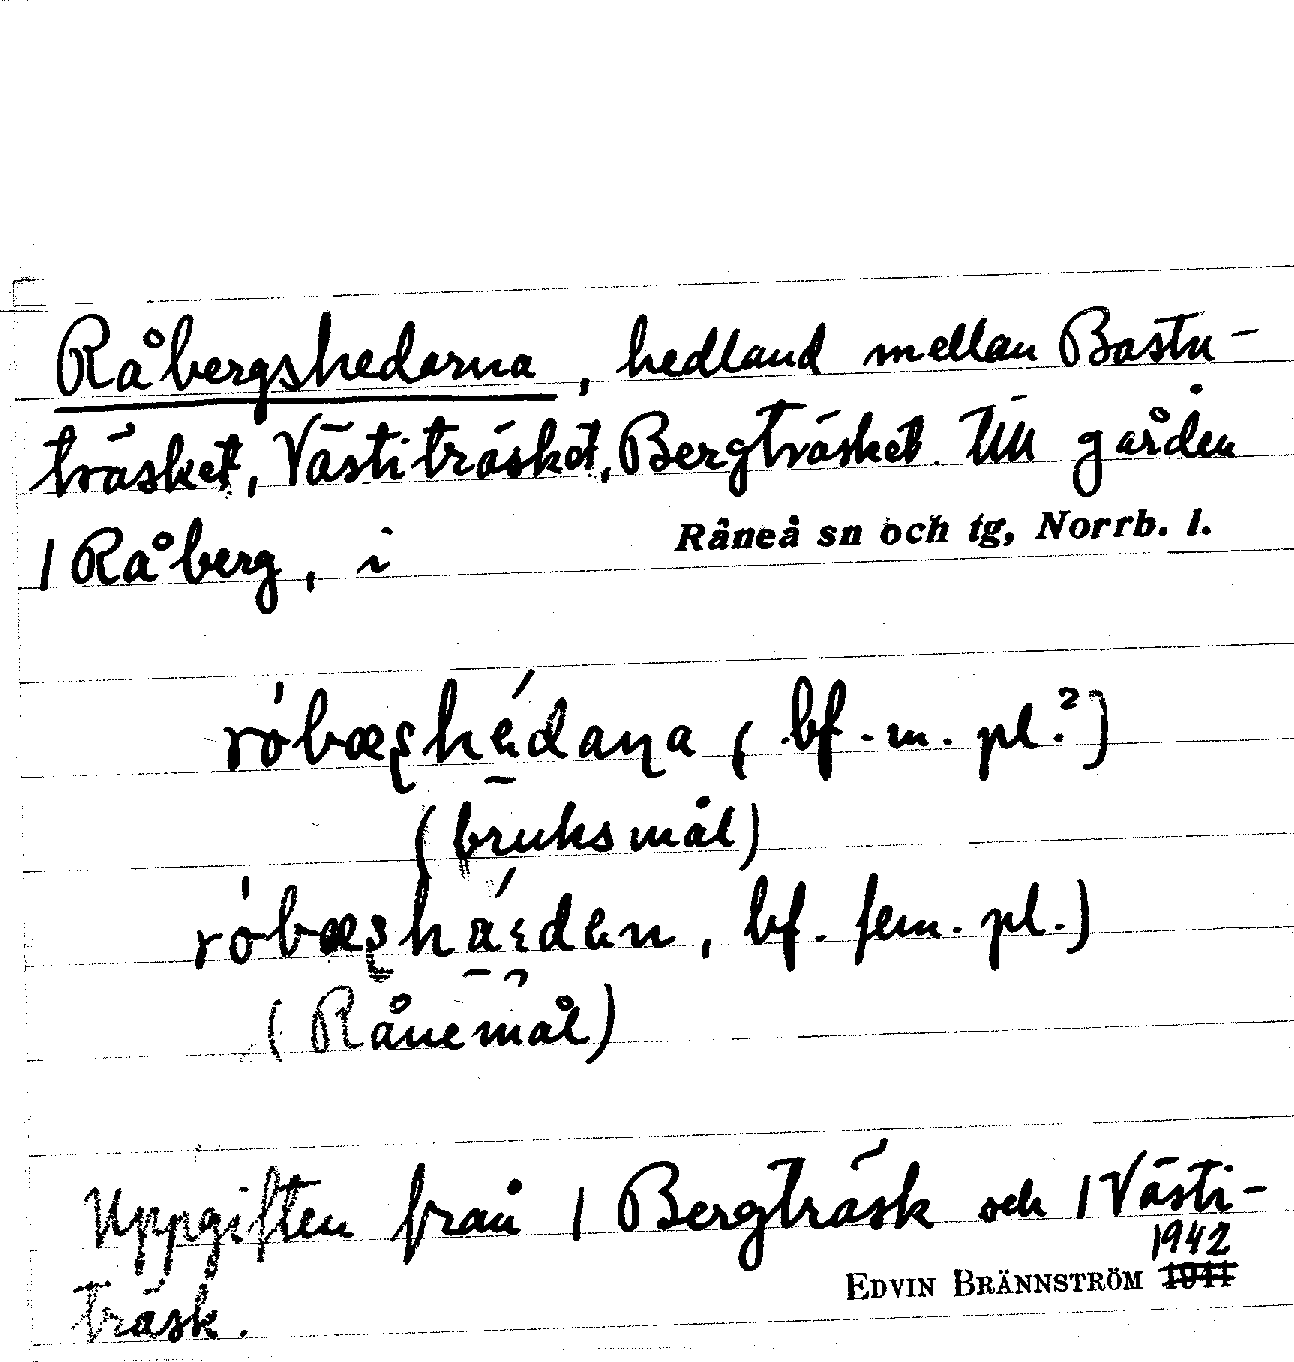 Råbergshedarna, hedland mellan Bastu-
träsket, Västiträsket, Bergträsket. Till gården
1 Råberg, i Råneå sn och tg, Norrb. l.
(bf. m. pl.?)
(bruksmål)
, bf. fem. pl.)
(Rånemål)
Uppgiften från 1 Bergträsk och 1 Västi-
1942
träsk. EDVIN BRÄNNSTRÖM 1941